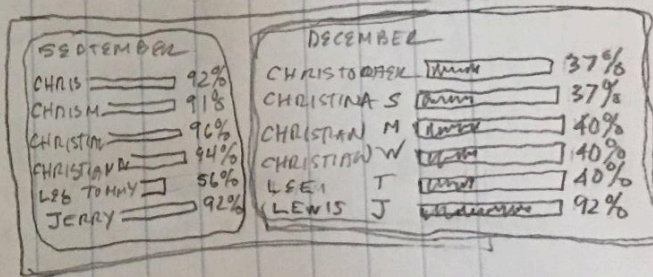 SEPTEMBER
CHRIS 92%
CHRIS M. 91%
96%
94%
LEE TOMMY 56%
JERRY 92%
DECEMBER
CHRISTOPHER 37%
CHRISTINA S 37%
CHRISTIAN M 40%
CHRISTIAN W 40%
T 40%
LEWIS J 92%